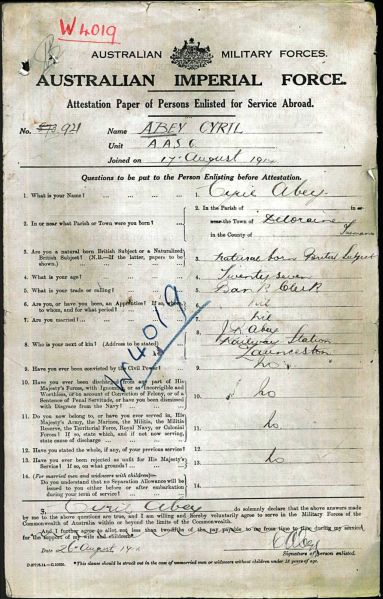 W 4019
AUSTRALIAN MILITARY FORCES.
AUSTRALIAN IMPERIAL FORCE.
Attestation Paper of Persons Enlisted for Service Abroad.
No. 921 Name ABEY CYRIL
Unit A.A.S.C.
Joined on 17 August 191
Questions to be put to the Person Enlisting before Attestation.
1. What is your Name? Cyril Abey
2. In or near what Parish or Town were you born? 2. In the Parish of in or near the Town of Deloraine in the County of Tasmania
3. Are you a natural born British Subject or a Naturalized British Subject? (N.B.—If the latter, papers to be shown). 3 Natural born British Subject
4. What is your age? 4 Twenty seven
5. What is your trade or calling? 5 Bank Clerk
6. Are you, or have you been, an Apprentice? If so, where, to whom, and for what period? 6 Nil
7. Are you married? 7 Nil
8. Who is your next of kin? (Address to be stated) 8 Abey
Railway Station
Launceston
9. Have you ever been convicted by the Civil Power? 9 No
10. Have you ever been discharged from any part of His Majesty's Forces, with Ignominy, or as Incorrigible and Worthless, or on account of Conviction of Felony, or of a Sentence of Penal Servitude, or have you been dismissed with Disgrace from the Navy? 10 No
11. Do you now belong to, or have you ever served in, His Majesty's Army, the Marines, the Militia, the Militia Reserve, the Territorial Force, Royal Navy, or Colonial Forces? If so, state which, and if not now serving, state cause of discharge 11 No
12. Have you stated the whole, if any, of your previous service? 12
13. Have you ever been rejected as unfit for His Majesty's Service? If so, on what grounds? 13 No
14. (For married men and widowers with children)—
Do you understand that no Separation Allowance will be issued to you either before or after embarkation during your term of service? 14
W 4019
I, Cyril Abey do solemnly declare that the above answers made by me to the above questions are true, and I am willing and hereby voluntarily agree to serve in the Military Forces of the Commonwealth of Australia within or beyond the limits of the Commonwealth.
*And I further agree to allot not less than two-fifths of the pay payable to me from time to time during my service for the support of my wife and children.
Date 26 August 191
C Abey
Signature of person enlisted.
*This clause should be struck out in the case of unmarried men or widowers without children under 18 years of age.